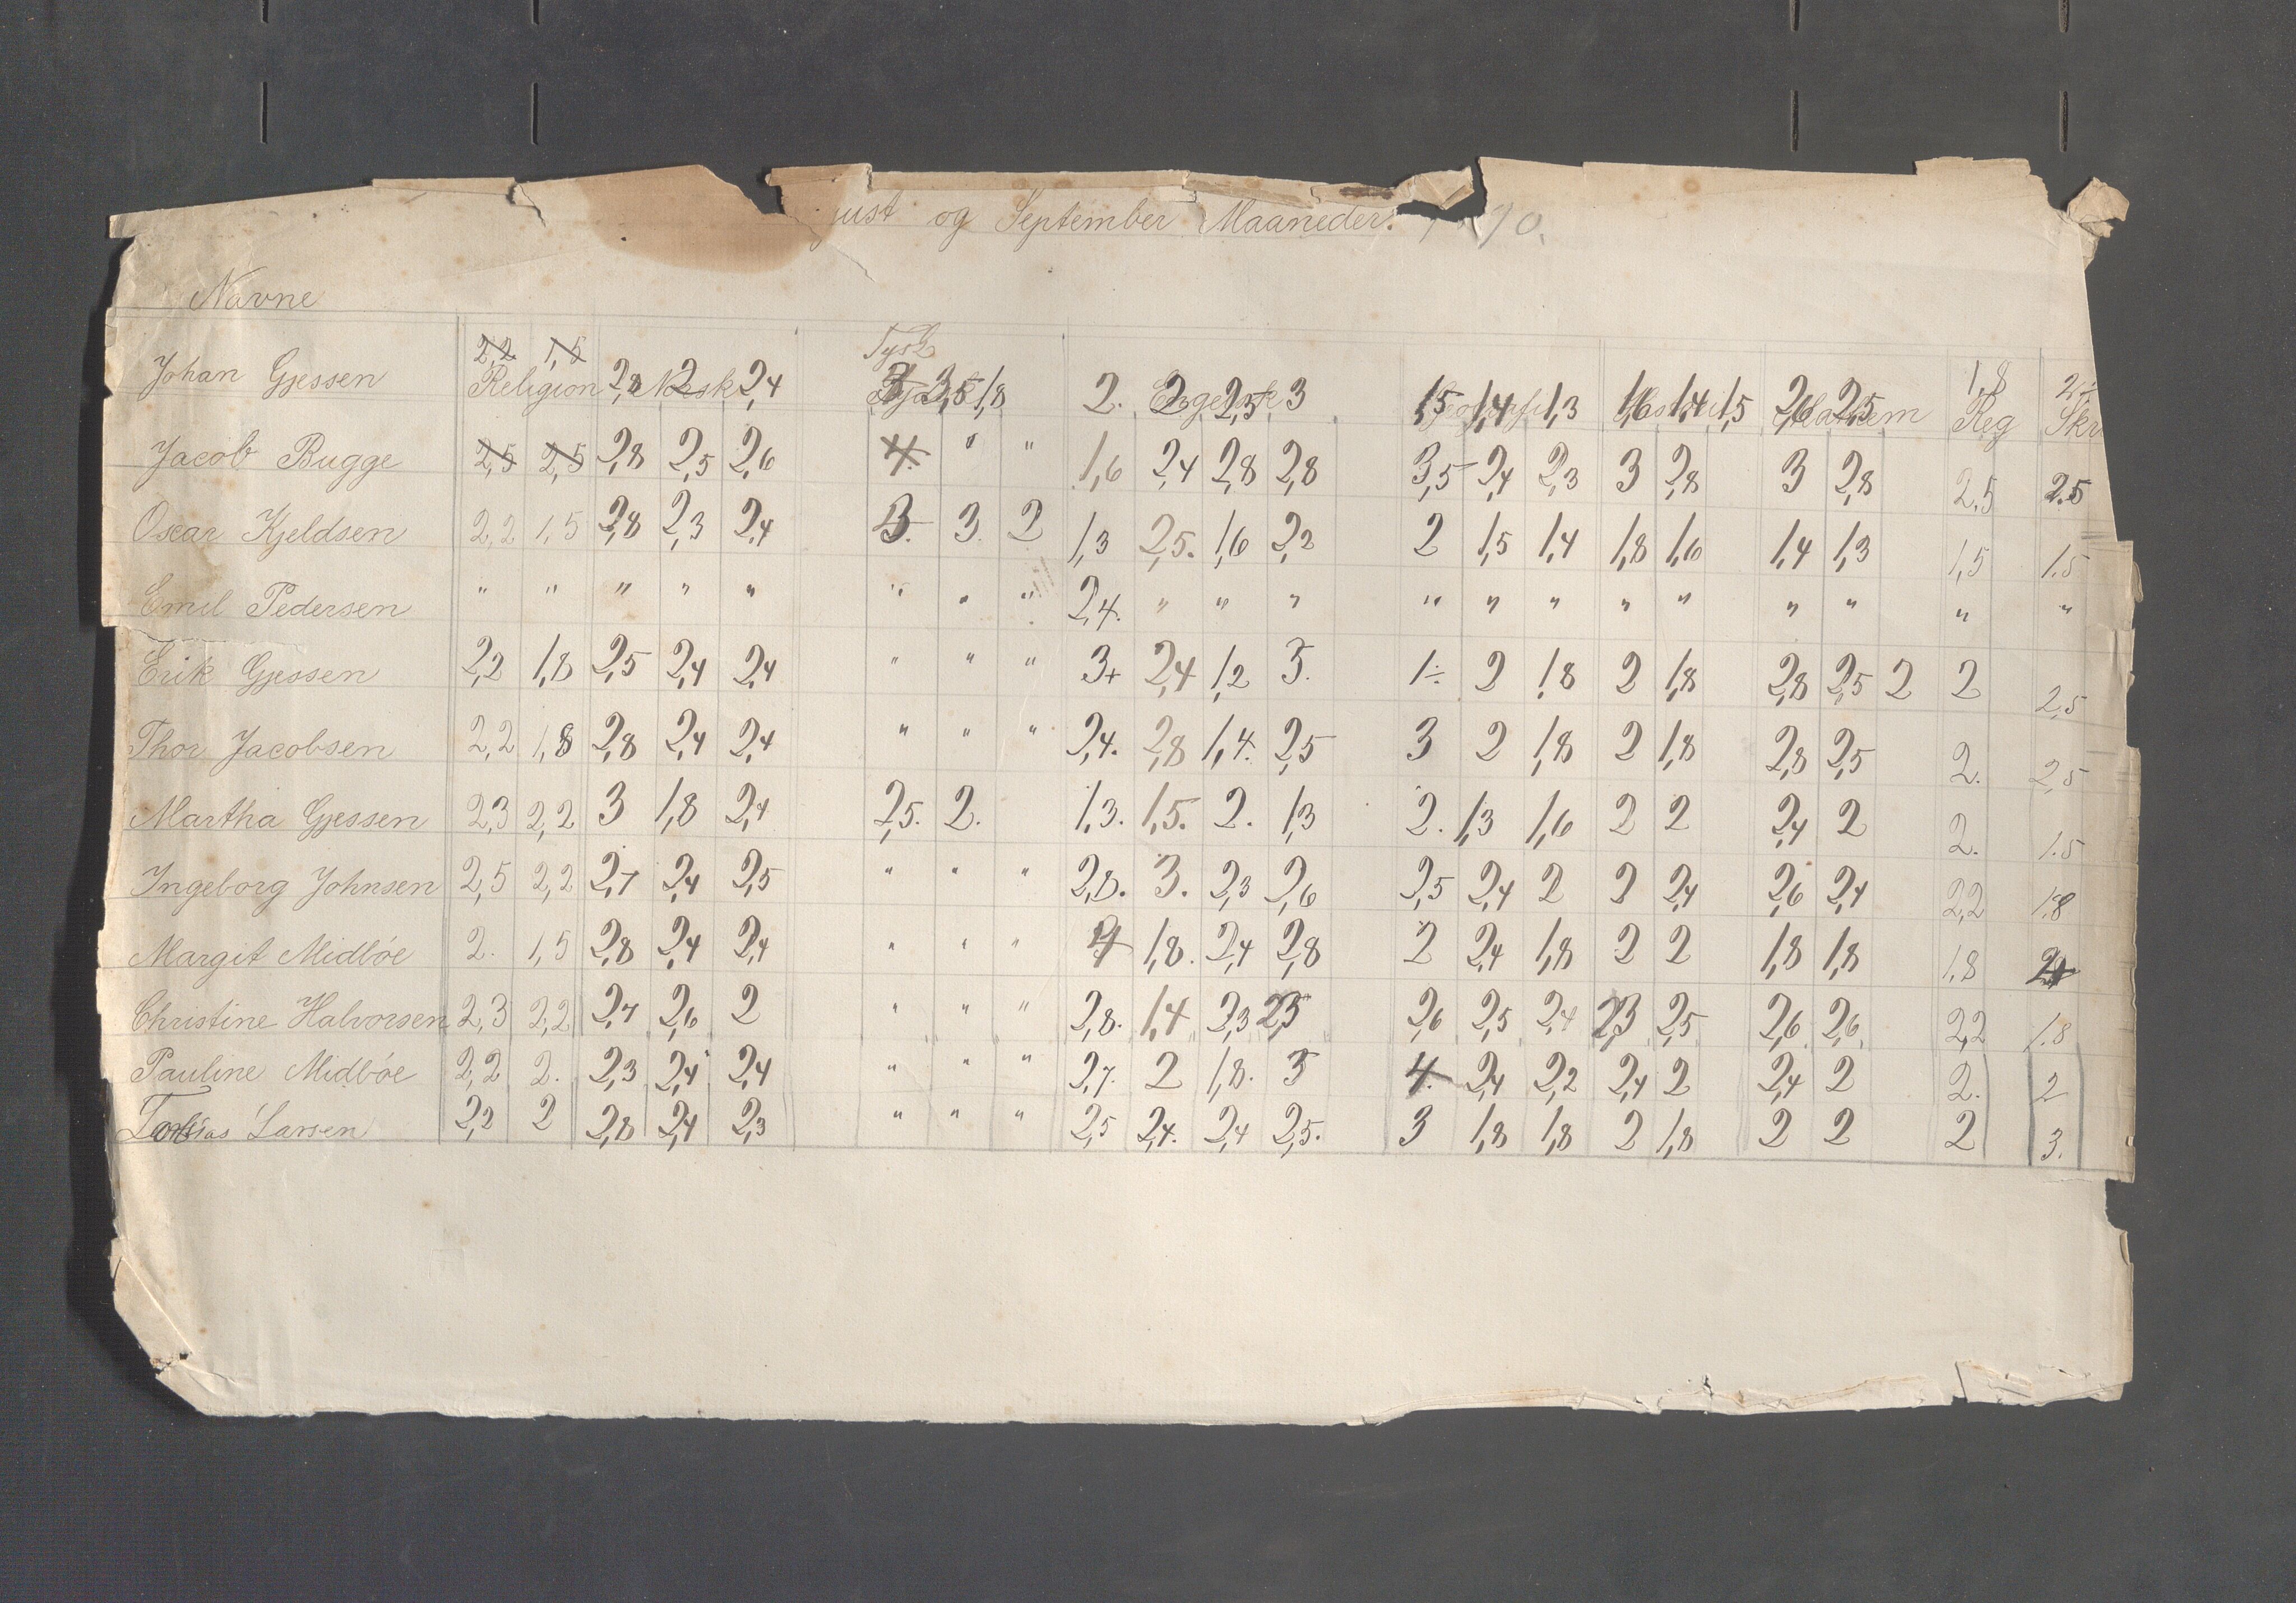 just og September Maaneder.
Navne
Johan Gjessen 2,2 1,5 Religion 2,8 Norsk 2 2,4 Tysk 3,5 1,8 2. Engelsk 2 2,5 3 1,5 1,4 1,3 1,6 1,4 1,5 2,6 2,5 Mathem 1,8 Reg Skr
Jacob Bugge 2,5 2,5 2,8 2,5 2,6 4. " " 1,6 2,4 2,8 2,8 3,5 2,4 2,3 3 2,8 3 2,8 2,5 2.5
Oscar Kjeldsen 2,2 1,5 2,8 2,3 2,4 3. 3. 2 1,3 2,5. 1,6 2,2 2 1,5 1,4 1,8 1,6 1,4 1,3 1,5 1.5
Emil Pedersen " " " " " " " " 2,4. " " " " " " " " " " " "
Erik Gjessen 2,2 1,8 2,5 2,4 2,4 " " " 3+ 2,4 1,2 3. 1÷ 2 1,8 2 1,8 2,8 2,5 2 2 2,5
Thor Jacobsen 2,2 1,8 2,8 2,4 2,4 " " " 2,4. 2,8 1,4. 2,5 3 2 1,8 2 1,8 2,8 2,5 2. 2,5
Martha Gjessen 2,3 2,2 3 1,8 2,4 2,5. 2. 1,3. 1,5. 2. 1,3 2. 1,3 1,6 2 2 2,4 2 2. 1.5
Ingeborg Johnsen 2,5 2,2 2,7 2,4 2,5 " " " 2,8. 3. 2,3 2,6 2,5 2,4 2 2 2,4 2,6 2,4 2,2 1.8
Margit Midbóe 2. 1,5 2,8 2,4 2,4 " " " 4 1,8. 2,4 2,8 2 2,4 1,8 2 2 1,8 1,8 1,8
Christine Halvorsen 2,3 2,2 2,7 2,6 2 " " " 2,8. 1,4 2,3 2,5 2,6 2,5 2,4 2,3 2,5 2,6 2,6 2,2 1.8
Pauline Midbóe 2,2 2. 2,3 2,4 2,4 " " " 2,7. 2 1,8. 3 4. 2,4 2,2 2,4 2 2,4 2 2. 2
Tobias Larsen 2,2 2 2,8 2,4 2,3 " " " 2,5 2,4. 2,4 2,5. 3 1,8 1,8 2 1,8 2 2 2 3.